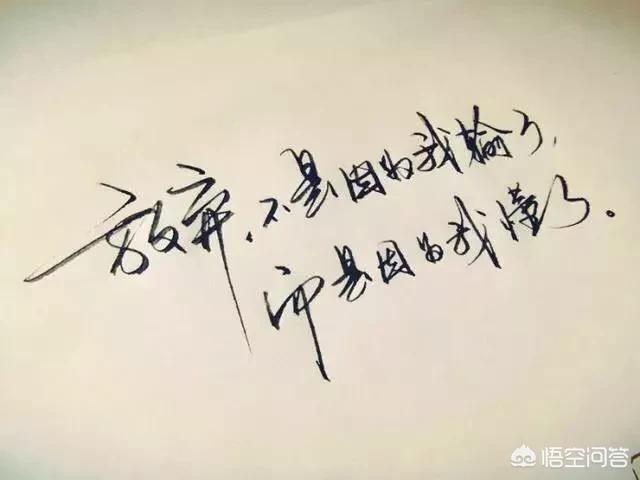 放弃，不是因为我输了，
而是因为我懂了。
悟空问答